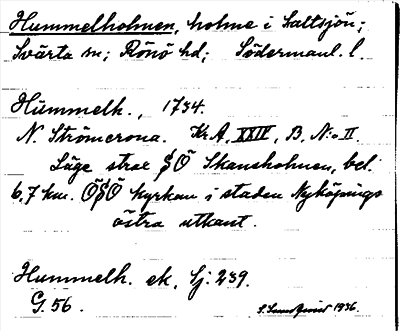 Hummelholmen, holme i Saltsjön;
Svärta sn; Rönö hd; Södermanl. l.
Hümmelh., 1734.
N. Strömcrona. Kr.A. XXIV, B, N:o II.
Läge strax SÖ Skansholmen, bel.
6,7 km. ÖSÖ kyrkan i staden Nyköpings
östra utkant.
Hummelh. ek. bj. 239.
G. 56.
1936.